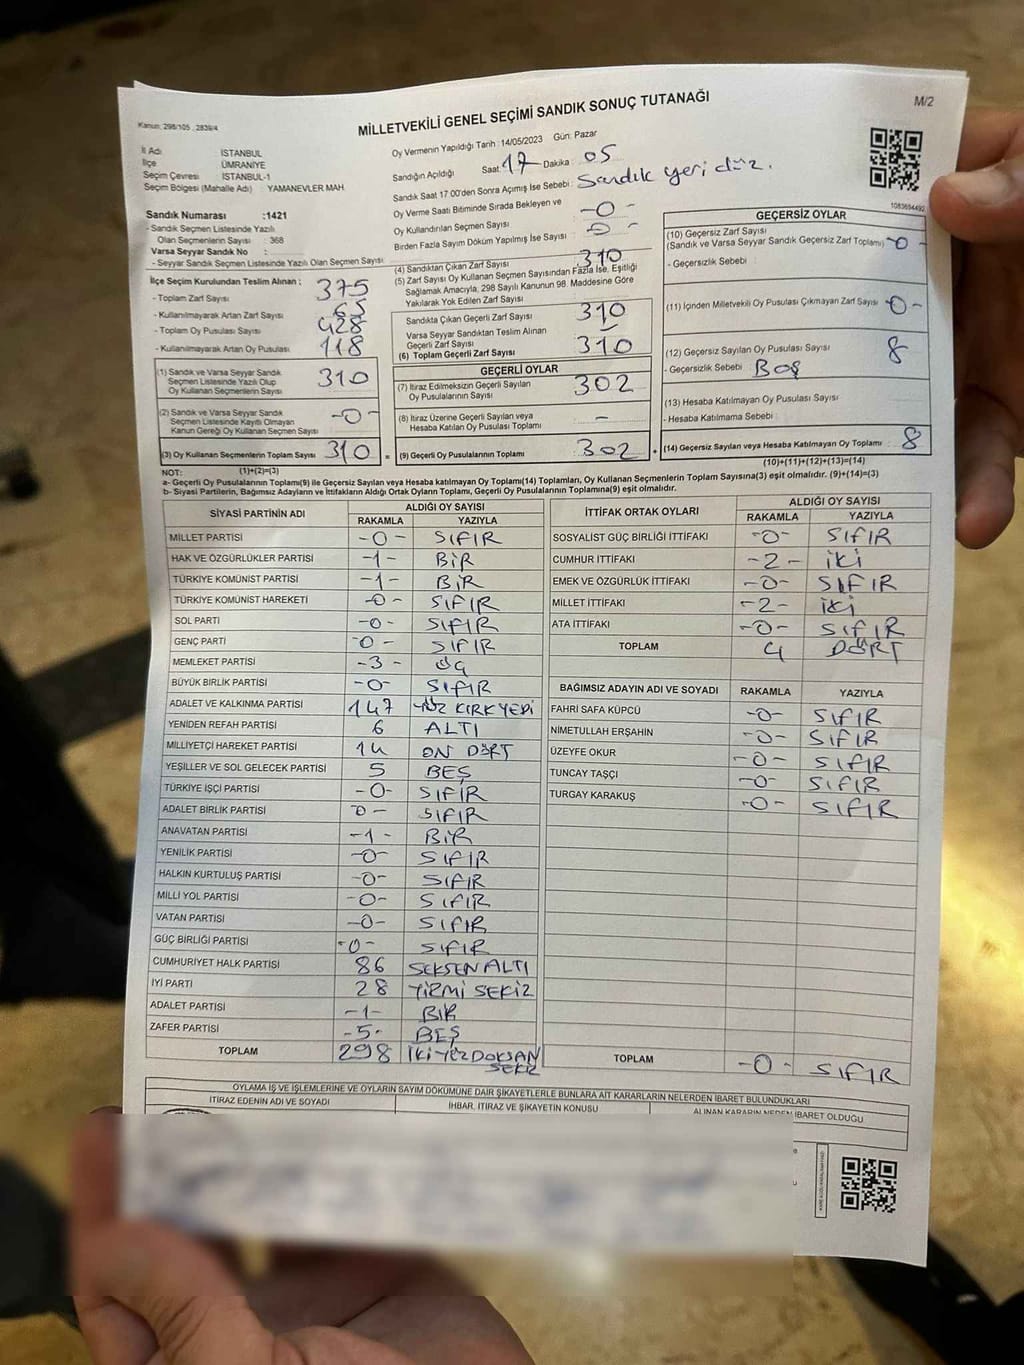 M/2
Kanun: 298/105 , 2839/4
MİLLETVEKİLİ GENEL SEÇİMİ SANDIK SONUÇ TUTANAĞI
İl Adı İSTANBUL
İlçe ÜMRANİYE
Seçim Çevresi : İSTANBUL-1
Seçim Bölgesi (Mahalle Adı) YAMANEVLER MAH.
Sandık Numarası :1421
- Sandık Seçmen Listesinde Yazılı
Olan Seçmenlerin Sayısı : 368
Varsa Seyyar Sandık No :
- Seyyar Sandık Seçmen Listesinde Yazılı Olan Seçmen Sayısı :
Oy Vermenin Yapıldığı Tarih : 14/05/2023 Gün: Pazar
Sandığın Açıldığı Saat: 17 Dakika : 05
Sandık Saat 17:00'den Sonra Açılmış İse Sebebi : Sandık yeri düz.
Oy Verme Saati Bitiminde Sırada Bekleyen ve
Oy Kullandırılan Seçmen Sayısı : -0-
Birden Fazla Sayım Döküm Yapılmış İse Sayısı : -0-
1083694492
İlçe Seçim Kurulundan Teslim Alınan ;
- Toplam Zarf Sayısı : 375
- Kullanılmayarak Artan Zarf Sayısı : 65
- Toplam Oy Pusulası Sayısı : 428
- Kullanılmayarak Artan Oy Pusulası : 118
(1) Sandık ve Varsa Seyyar Sandık
Seçmen Listesinde Yazılı Olup
Oy Kullanan Seçmenlerin Sayısı : 310
(2) Sandık ve Varsa Seyyar Sandık
Seçmen Listesinde Kayıtlı Olmayan
Kanun Gereği Oy Kullanan Seçmen Sayısı -0-
(3) Oy Kullanan Seçmenlerin Toplam Sayısı 310
(1)+(2)=(3)
(4) Sandıktan Çıkan Zarf Sayısı : 310
(5) Zarf Sayısı Oy Kullanan Seçmen Sayısından Fazla İse, Eşitliği
Sağlamak Amacıyla, 298 Sayılı Kanunun 98. Maddesine Göre
Yakılarak Yok Edilen Zarf Sayısı :
Sandıkta Çıkan Geçerli Zarf Sayısı : 310
Varsa Seyyar Sandıktan Teslim Alınan
Geçerli Zarf Sayısı : -
(6) Toplam Geçerli Zarf Sayısı : 310
GEÇERLİ OYLAR
(7) İtiraz Edilmeksizin Geçerli Sayılan
Oy Pusulalarının Sayısı : 302
(8) İtiraz Üzerine Geçerli Sayılan veya
Hesaba Katılan Oy Pusulası Toplamı : -
= (9) Geçerli Oy Pusulalarının Toplamı : 302 +
GEÇERSİZ OYLAR
(10) Geçersiz Zarf Sayısı
(Sandık ve Varsa Seyyar Sandık Geçersiz Zarf Toplamı) -0-
- Geçersizlik Sebebi :
(11) İçinden Milletvekili Oy Pusulası Çıkmayan Zarf Sayısı : -0-
(12) Geçersiz Sayılan Oy Pusulası Sayısı : 8
- Geçersizlik Sebebi : BOŞ
(13) Hesaba Katılmayan Oy Pusulası Sayısı :
- Hesaba Katılmama Sebebi :
(14) Geçersiz Sayılan veya Hesaba Katılmayan Oy Toplamı : 8
(10)+(11)+(12)+(13)=(14)
NOT:
a- Geçerli Oy Pusulalarının Toplamı(9) ile Geçersiz Sayılan veya Hesaba katılmayan Oy Toplamı(14) Toplamları, Oy Kullanan Seçmenlerin Toplam Sayısına(3) eşit olmalıdır. (9)+(14)=(3)
b- Siyasi Partilerin, Bağımsız Adayların ve İttifakların Aldığı Ortak Oyların Toplamı, Geçerli Oy Pusulalarının Toplamına(9) eşit olmalıdır.
SİYASİ PARTİNİN ADI ALDIĞI OY SAYISI
RAKAMLA YAZIYLA
MİLLET PARTİSİ -0- SIFIR
HAK VE ÖZGÜRLÜKLER PARTİSİ -1- BİR
TÜRKİYE KOMÜNİST PARTİSİ -1- BİR
TÜRKİYE KOMÜNİST HAREKETİ -0- SIFIR
SOL PARTİ -0- SIFIR
GENÇ PARTİ -0- SIFIR
MEMLEKET PARTİSİ -3- ÜÇ
BÜYÜK BİRLİK PARTİSİ -0- SIFIR
ADALET VE KALKINMA PARTİSİ 147 YÜZ KIRK YEDİ
YENİDEN REFAH PARTİSİ 6 ALTI
MİLLİYETÇİ HAREKET PARTİSİ 14 ON DÖRT
YEŞİLLER VE SOL GELECEK PARTİSİ 5 BEŞ
TÜRKİYE İŞÇİ PARTİSİ -0- SIFIR
ADALET BİRLİK PARTİSİ 0- SIFIR
ANAVATAN PARTİSİ -1- BİR
YENİLİK PARTİSİ -0- SIFIR
HALKIN KURTULUŞ PARTİSİ -0- SIFIR
MİLLİ YOL PARTİSİ -0- SIFIR
VATAN PARTİSİ -0- SIFIR
GÜÇ BİRLİĞİ PARTİSİ -0- SIFIR
CUMHURİYET HALK PARTİSİ 86 SEKSEN ALTI
İYİ PARTİ 28 YİRMİ SEKİZ
ADALET PARTİSİ -1- BİR
ZAFER PARTİSİ -5- BEŞ
TOPLAM 298 İKİ YÜZ DOKSAN
SEKİZ
İTTİFAK ORTAK OYLARI ALDIĞI OY SAYISI
RAKAMLA YAZIYLA
SOSYALİST GÜÇ BİRLİĞİ İTTİFAKI -0- SIFIR
CUMHUR İTTİFAKI -2- İKİ
EMEK VE ÖZGÜRLÜK İTTİFAKI -0- SIFIR
MİLLET İTTİFAKI -2- İKİ
ATA İTTİFAKI -0- SIFIR
TOPLAM 4 DÖRT
BAĞIMSIZ ADAYIN ADI VE SOYADI RAKAMLA YAZIYLA
FAHRİ SAFA KÜPCÜ -0- SIFIR
NİMETULLAH ERŞAHİN -0- SIFIR
ÜZEYFE OKUR -0- SIFIR
TUNCAY TAŞÇI -0- SIFIR
TURGAY KARAKUŞ -0- SIFIR
TOPLAM -0- SIFIR
OYLAMA İŞ VE İŞLEMLERİNE VE OYLARIN SAYIM DÖKÜMÜNE DAİR ŞİKAYETLERLE BUNLARA AİT KARARLARIN NELERDEN İBARET BULUNDUKLARI
İTİRAZ EDENİN ADI VE SOYADI İHBAR, İTİRAZ VE ŞİKAYETİN KONUSU ALINAN KARARIN NEDEN İBARET OLDUĞU